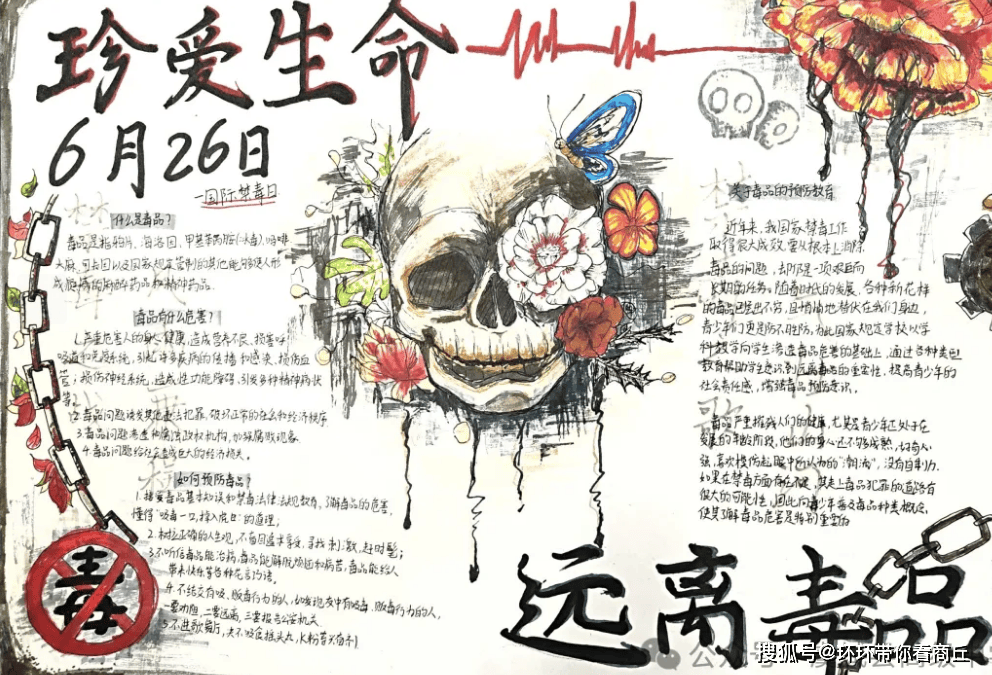 珍爱生命
6月26日
一国际禁毒日
什么是毒品?
毒品是指鸦片、海洛因、甲基苯丙胺(冰毒)、吗啡
大麻、可卡因以及国家规定管制的其他能够使人形
成瘾癖的麻醉药品和精神药品.
毒品有什么危害?
1.严重危害人的身心健康,造成营养不良,损害呼
吸道和免疫系统,引起许多疾病的传播和感染,损伤血
管,损伤神经系统,造成性功能障碍,引发多种精神病状
等.
2.毒品问题诱发其他违法犯罪,破坏正常的社会和经济秩序
3.毒品问题渗透和腐蚀政权机构,加速腐败现象.
4.毒品问题给社会造成巨大的经济损失.
如何预防毒品?
1.接受毒品基本知识和禁毒法律法规教育,了解毒品的危害,
懂得“吸毒一口,掉入虎口”的道理;
2.树立正确的人生观,不盲目追求享受,寻找刺激,赶时髦;
3.不听信毒品能治病,毒品能解脱烦恼和痛苦,毒品能给人
带来快乐等各种花言巧语.
4.不结交有吸、贩毒行为的人,如发现友中有吸毒、贩毒行为的人,
一要劝阻,二要远离,三要报告公安机关
5.不进歌舞厅,决不吸食摇头丸,K粉等
毒
关于毒品的预防教育
近年来,我国家禁毒工作
取得很大成效,要从根本上消除
毒品的问题,去除是一项艰巨而
长期的任务,随着时代的发展,各种新花样
的毒品已层出不穷,且悄悄地替伏在我们身边,
青少年们更是防不胜防,为此国家规定学校以学
科教学向学生渗透毒品危害的基础上,通过各种类型
教育帮助学生意识到远离毒品的重要性,提高青少年的
社会责任感,增强毒品预防意识.
毒品严重摧残人们的健康,尤其是青少年正处于在
发展的年龄阶段,他们的身心还不够成熟,好奇心
强,喜欢模仿起眼中所认为的“潮流”,没有自制力.
如果在禁毒方面有任何,其走上毒品犯罪的道路有
很大的可能性,因此向青少年普及毒品种类概念,
使其了解毒品危害是特别重要的
远离毒品
公众号
搜狐号@环环带你看商丘